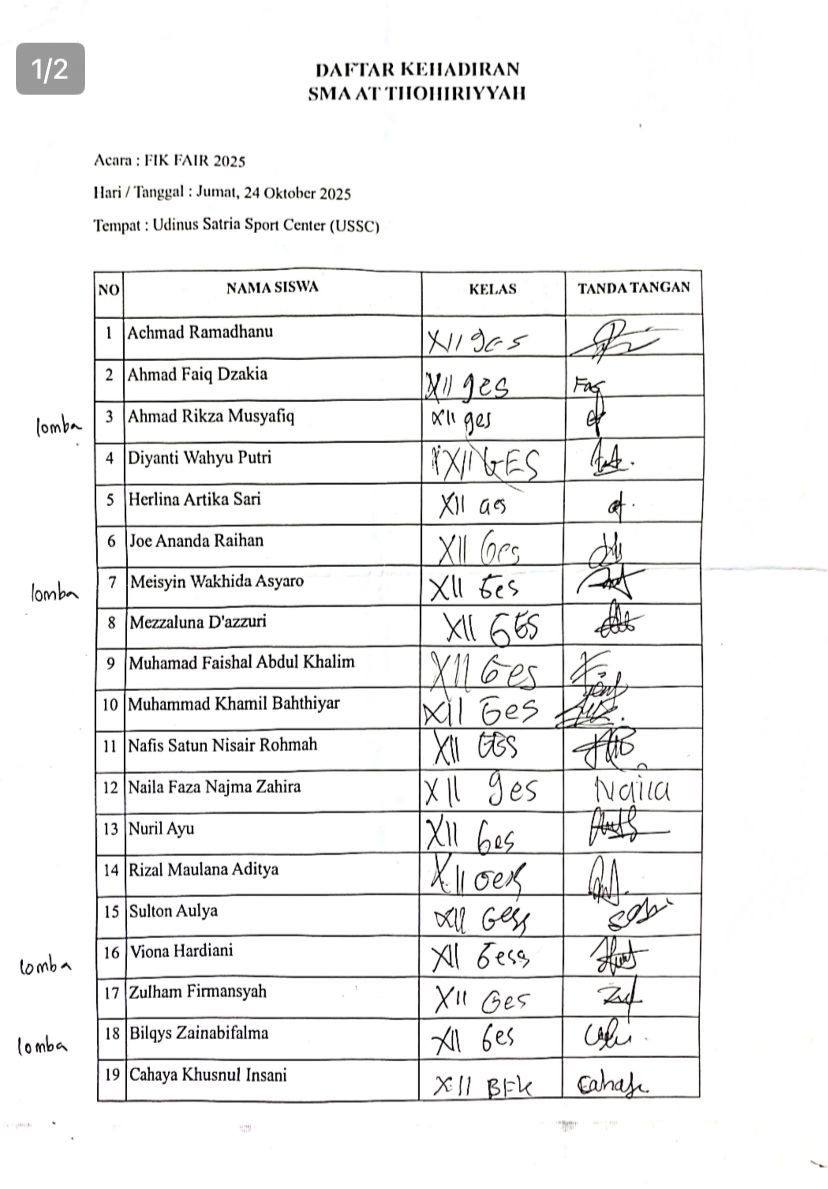 1/2
DAFTAR KEHADIRAN
SMA AT THOHIRIYYAH
Acara : FIK FAIR 2025
Hari / Tanggal : Jumat, 24 Oktober 2025
Tempat : Udinus Satria Sport Center (USSC)
NO NAMA SISWA KELAS TANDA TANGAN
1 Achmad Ramadhanu XII ges
2 Ahmad Faiq Dzakia XII ges
lomba 3 Ahmad Rikza Musyafiq XII ges
4 Diyanti Wahyu Putri XII GES
5 Herlina Artika Sari XII ges
6 Joe Ananda Raihan XII Ges
lomba 7 Meisyin Wakhida Asyaro XII Ges
8 Mezzaluna D'azzuri XII GES
9 Muhamad Faishal Abdul Khalim XII Ges
10 Muhammad Khamil Bahthiyar XII Ges
11 Nafis Satun Nisair Rohmah XII GES
12 Naila Faza Najma Zahira XII ges Naila
13 Nuril Ayu XII Ges
14 Rizal Maulana Aditya XII
15 Sulton Aulya XII Gess
lomba 16 Viona Hardiani XII Gess
17 Zulham Firmansyah XII Ges
lomba 18 Bilqys Zainabifalma XII Ges
19 Cahaya Khusnul Insani XII